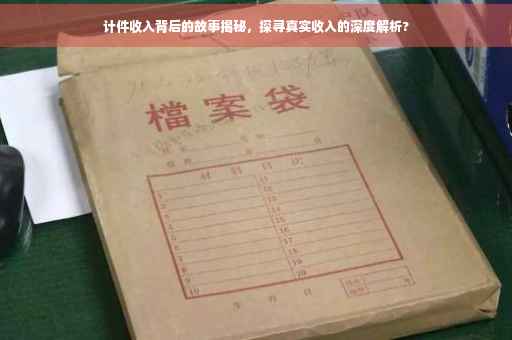 计件收入背后的故事揭秘，探寻真实收入的深度解析?
檔案袋
材料目次
1
2
3
4
5
6
7
8
9
10
11
12
13
14
15
16
17
18
19
20
年 月 日